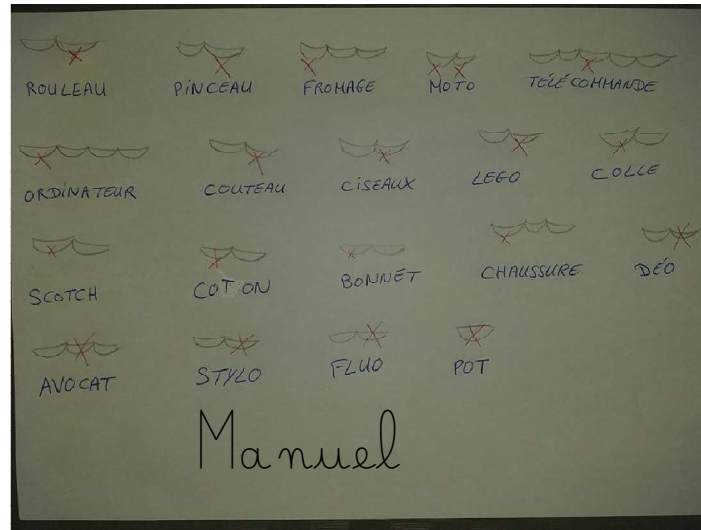 ROULEAU PINCEAU FROMAGE MOTO TÉLÉCOMMANDE
ORDINATEUR COUTEAU CISEAUX LEGO COLLE
SCOTCH COTON BONNET CHAUSSURE DÉO
AVOCAT STYLO FLUO POT
Manuel